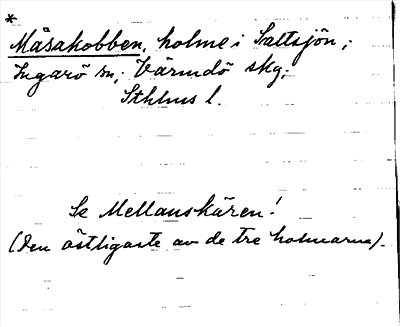 *
Måsakobben, holme i Saltsjön;
Ingarö sn; Värmdö skg;
Sthlms l.
Se Mellanskären!
(Den östligaste av de tre holmarna).